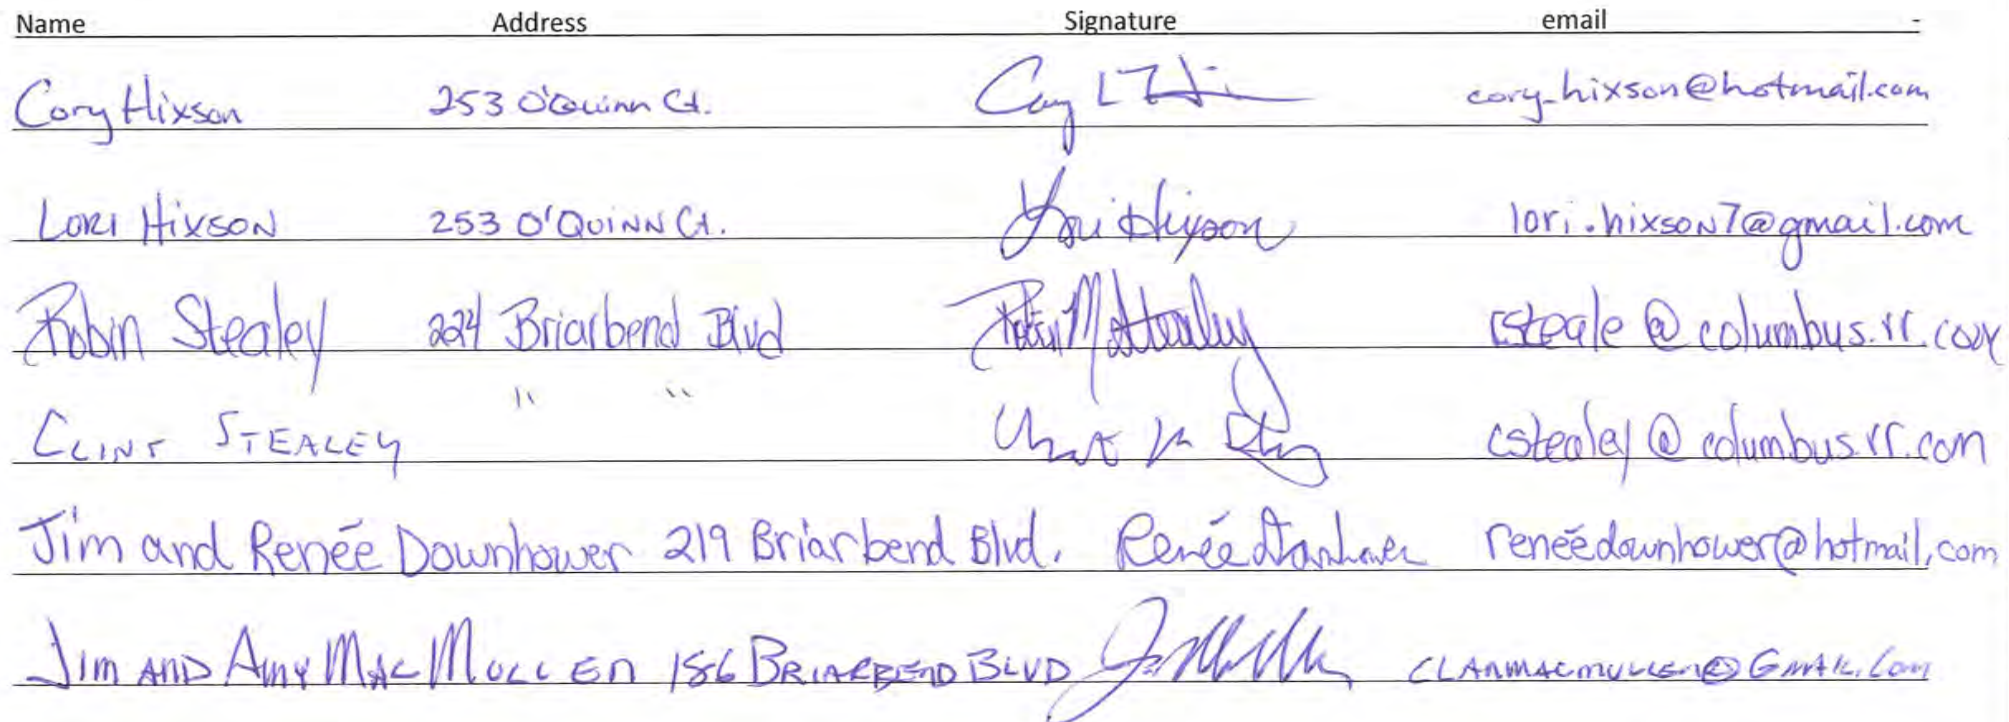 Name Address Signature email -
Cory Hixson 253 O'Quinn Ct. cory_hixson@hotmail.com
LORI HIXSON 253 O'QUINN Ct. Lori Hixson lori.hixson7@gmail.com
Robin Stealey 224 Briarbend Blvd Robin M Stealey @columbus.rr.com
CLINT STEALEY " " cstealey@columbus.rr.com
Jim and Renée Downhower 219 Briarbend Blvd. Renée Downhower renéedownhower@hotmail.com
JIM AND AMY MACMULLEN 186 BRIARBEND BLVD CLANMACMULLEN@GMAIL.COM